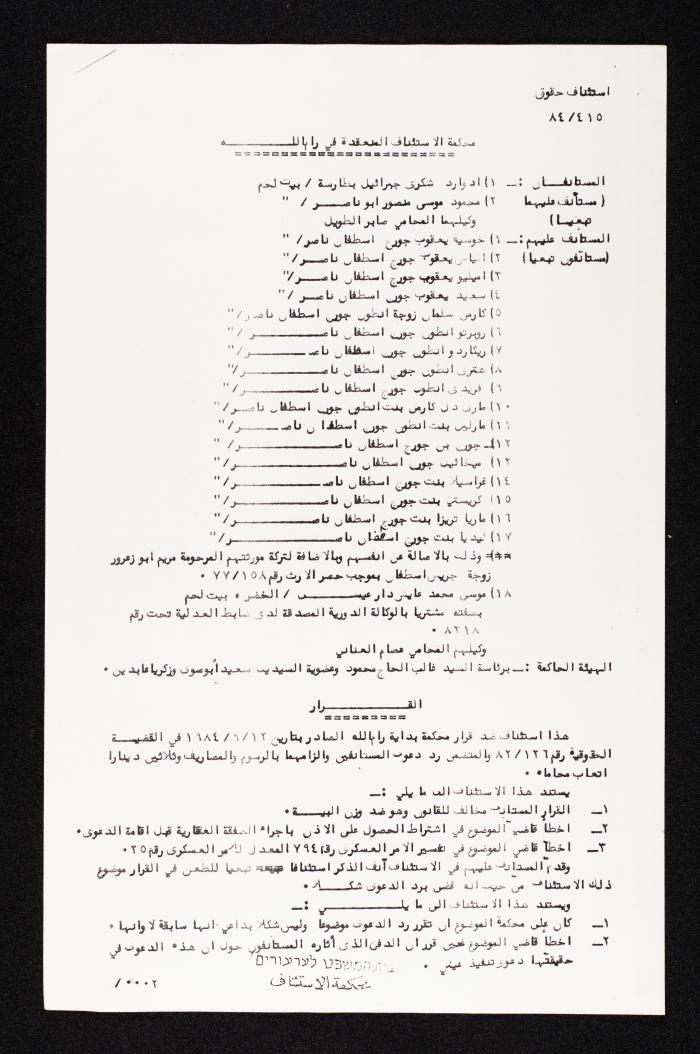 استئناف حقوق
٨٤/٤١٥
محكمة الاستئناف المنعقدة في رام اللـــــــــه
المستانفـــان :ــ ١) ادوارد شكرى جبرائيل بطارسة / بيت لحم
(مستأنف عليهما ٢) محمود موسى منصور ابو ناصـــر / "
تبعيـا) وكيلهما المحامي صابر الطويل
المستانف عليهم :ــ ١) خوسيه يعقوب جورج اسطفان ناصر/ "
(مستانفون تبعيا) ٢) الياس يعقوب جورج اسطفان ناصـــر/ "
٣) اميليو يعقوب جورج اسطفان ناصـــر/"
٤) سعيد يعقوب جورج اسطفان ناصــر / "
٥) كارمن سلمان زوجة انطون جورج اسطفان ناصر/ "
٦) روبرتو انطون جورج اسطفان ناصـــــــــر / "
٧) ريكاردو انطون جورج اسطفان ناصـــــــر/ "
٨) هنرى انطون جورج اسطفان ناصـــــــــر/ "
٩) فريدى انطون جورج اسطفان ناصـــــــــر/ "
١٠) مارى دل كارمن بنت انطون جورج اسطفان ناصـر/ "
١١) مارلين بنت انطون جورج اسطفان ناصـــــر/ "
١٢)ــ جورج بن جورج اسطفان ناصـــــــــر/ "
١٣) ميخائيل جورج اسطفان ناصـــــــــــر/ "
١٤) غراسيلا بنت جورج اسطفان ناصـــــــــر/ "
١٥) كريستي بنت جورج اسطفان ناصـــــــــر/ "
١٦) ماريا تريزا بنت جورج اسطفان ناصـــــــر/ "
١٧) ليديا بنت جورج اسطفان ناصـــــــــــر/ "
وذلك بالاصالة عن انفسهم وبالاضافة لتركة مورثتهم المرحومة مريم ابو زعرور
زوجة جريس اسطفان بموجب حصر الارث رقم ٧٧/١٥٨ ٠
١٨) موسى محمد عايش دار عيســـــى / الخضر ، بيت لحم
بصفته مشتريا بالوكالة الدورية المصدقة لدى ضابط العدلية تحت رقم
٨٢١٨ ٠
وكيلهم المحامي عصام العناني
الهيئة الحاكمة :ــ برئاسة السيد غالب الحاج محمود وعضوية السيدين سعيد أبوصوى وزكريا عابدين ٠
القـــــــــرار
هذا استئناف ضد قرار محكمة بداية رام الله الصادر بتاريخ ١٩٨٤/٦/١٢ في القضيـــة
الحقوقية رقم ٨٢/١٢٦ والمتضمن رد دعوى المستانفين والزامهما بالرسوم والمصاريف وثلاثين دينارا
اتعاب محاماه ٠
يستند هذا الاستئناف الى ما يلي :ــ
١ــ القرار المستانف مخالف للقانون وهو ضد وزن البينـة ٠
٢ــ اخطأ قاضي الموضوع في اشتراط الحصول على الاذن باجراء الصفقة العقارية قبل اقامة الدعوى٠
٣ــ اخطأ قاضي الموضوع في تفسير الامر العسكرى رقم ٧٩٤ المعدل للامر العسكرى رقم ٢٥ ٠
وقدم المستانف عليهم في الاستئناف آنف الذكر استئنافا تبعيا للطعن في القرار موضوع
ذلك الاستئناف من حيث انه قضى برد الدعوى شكـــلا ٠
ويستند هذا الاستئناف الى ما يلـــــــي :ــ
١ــ كان على محكمة الموضوع ان تقرر رد الدعوى موضوعا وليس شكلا بداعي انها سابقة لاوانها ٠
٢ــ اخطأ قاضي الموضوع حين قرر ان الدفع الذى أثاره المستانفون حول ان هذه الدعوى في
حقيقتها دعوى تنفيذ عيني ٠
בית המשפט לערעורים
محكمة الاستئناف
/٠٠٠٢